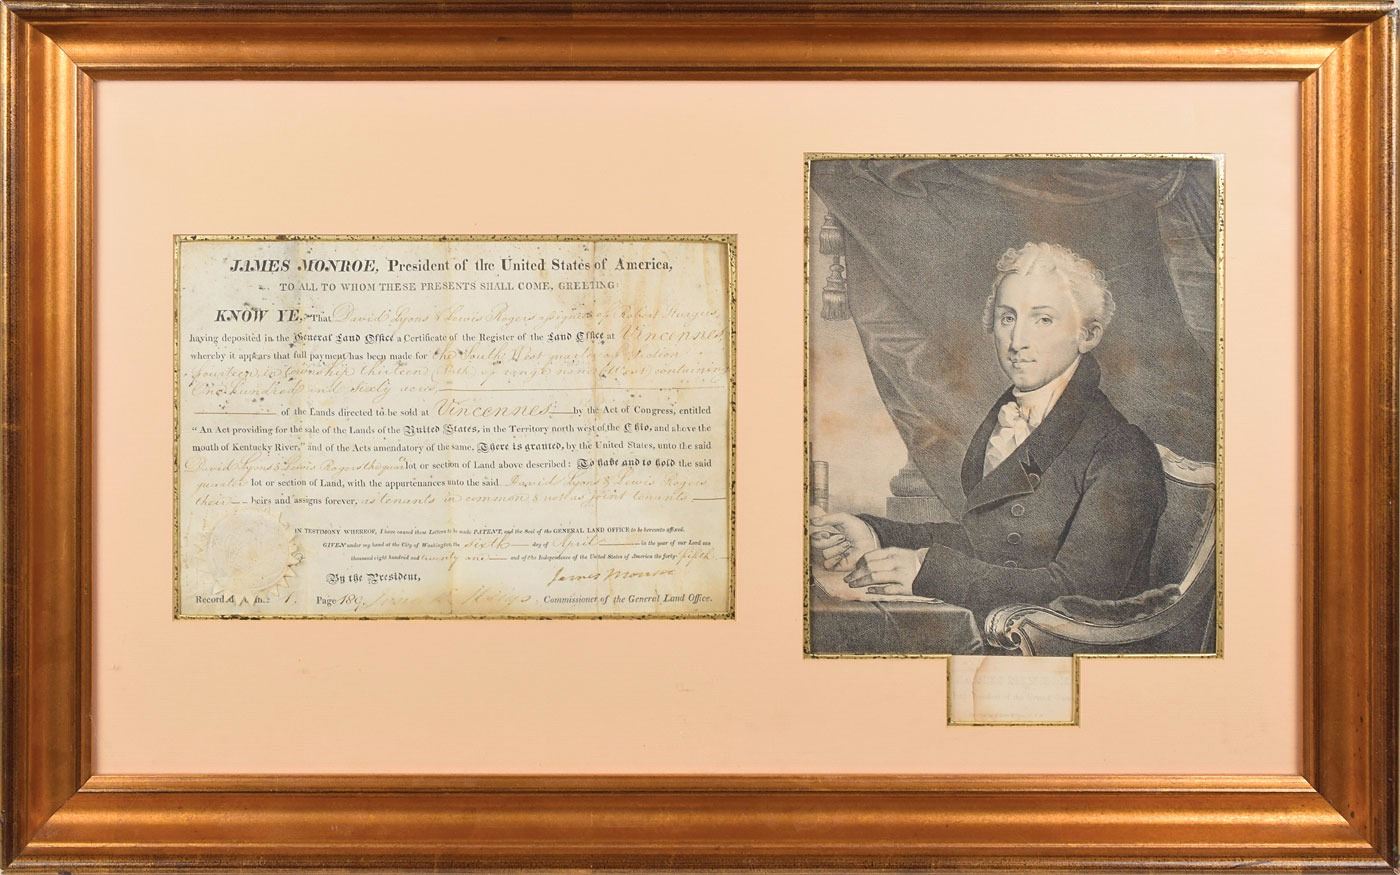 JAMES MONROE, President of the United States of America,
TO ALL TO WHOM THESE PRESENTS SHALL COME, GREETING:
KNOW YE, That David Lyons & Lewis Rogers assignees of Robert Sturgus,
having deposited in the General Land Office a Certificate of the Register of the Land Office at Vincennes
whereby it appears that full payment has been made for the South West quarter of Section
fourteen in township thirteen North of range nine (West) containing
One hundred and Sixty acres
of the Lands directed to be sold at Vincennes by the Act of Congress, entitled
“An Act providing for the sale of the Lands of the United States, in the Territory north west of the Ohio, and above the
mouth of Kentucky River,” and of the Acts amendatory of the same, There is granted, by the United States, unto the said
David Lyons & Lewis Rogers the quar lot or section of Land above described: To have and to hold the said
quarter lot or section of Land, with the appurtenances unto the said David Lyons & Lewis Rogers
their heirs and assigns forever, as tenants in common & not as joint tenants
IN TESTIMONY WHEREOF, I have caused these Letters to be made PATENT, and the Seal of the GENERAL LAND OFFICE to be hereunto affixed.
GIVEN under my hand at the City of Washington, the sixth day of April in the year of our Lord one
thousand eight hundred and twenty one and of the Independence of the United States of America the forty-fifth.
By the President, James Monroe
Recorded in Page 189 Commissioner of the General Land Office.